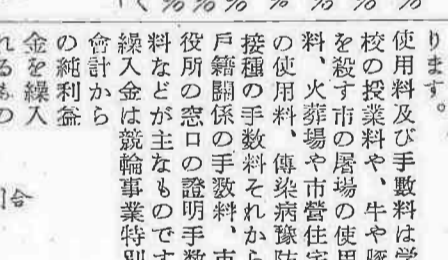 %%%%%
ります。
使用料及び手數料は学
校の授業料や、牛や豚
を殺す市の屠場の使用
料、火葬場や市営住宅
の使用料、傳染病豫防
接種の手数料それから
戸籍關係の手数料、市
役所の窓口の證明手数
料などが主なものです
繰入金は競輪事業特別
會計から
の純利益
金を繰入
れるもの
割合